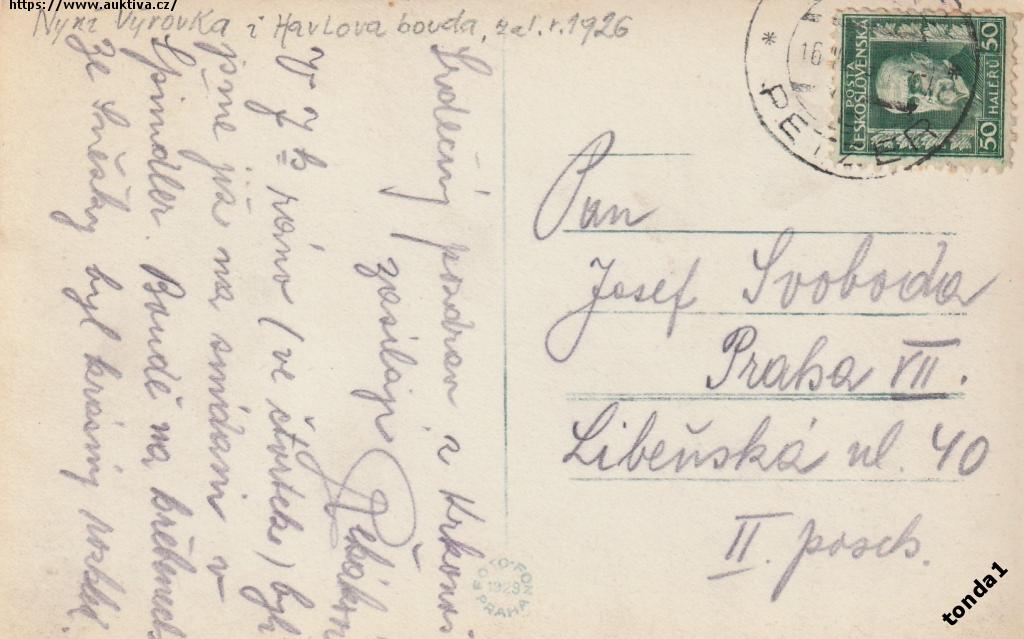 https://www.auktiva.cz/
Nyní Výrovka i Havlova bouda, zal. r. 1926
Srdečný pozdrav z Krkonoš
zasílají
V 7 h ráno (ve čtvrtek) byli
jsme již na snídani v
Spindler. Boudě na hřebenech
Ze Sněžky byl krásný rozhled.
Pan
Josef Svoboda
Praha VII.
Libeňská ul. 40
II. posch.
POSTA
ČESKOSLOVENSKA
50 HALÉŘŮ 50
* PETZER *
16
FOTO-FON
1929
PRAHA
tonda1